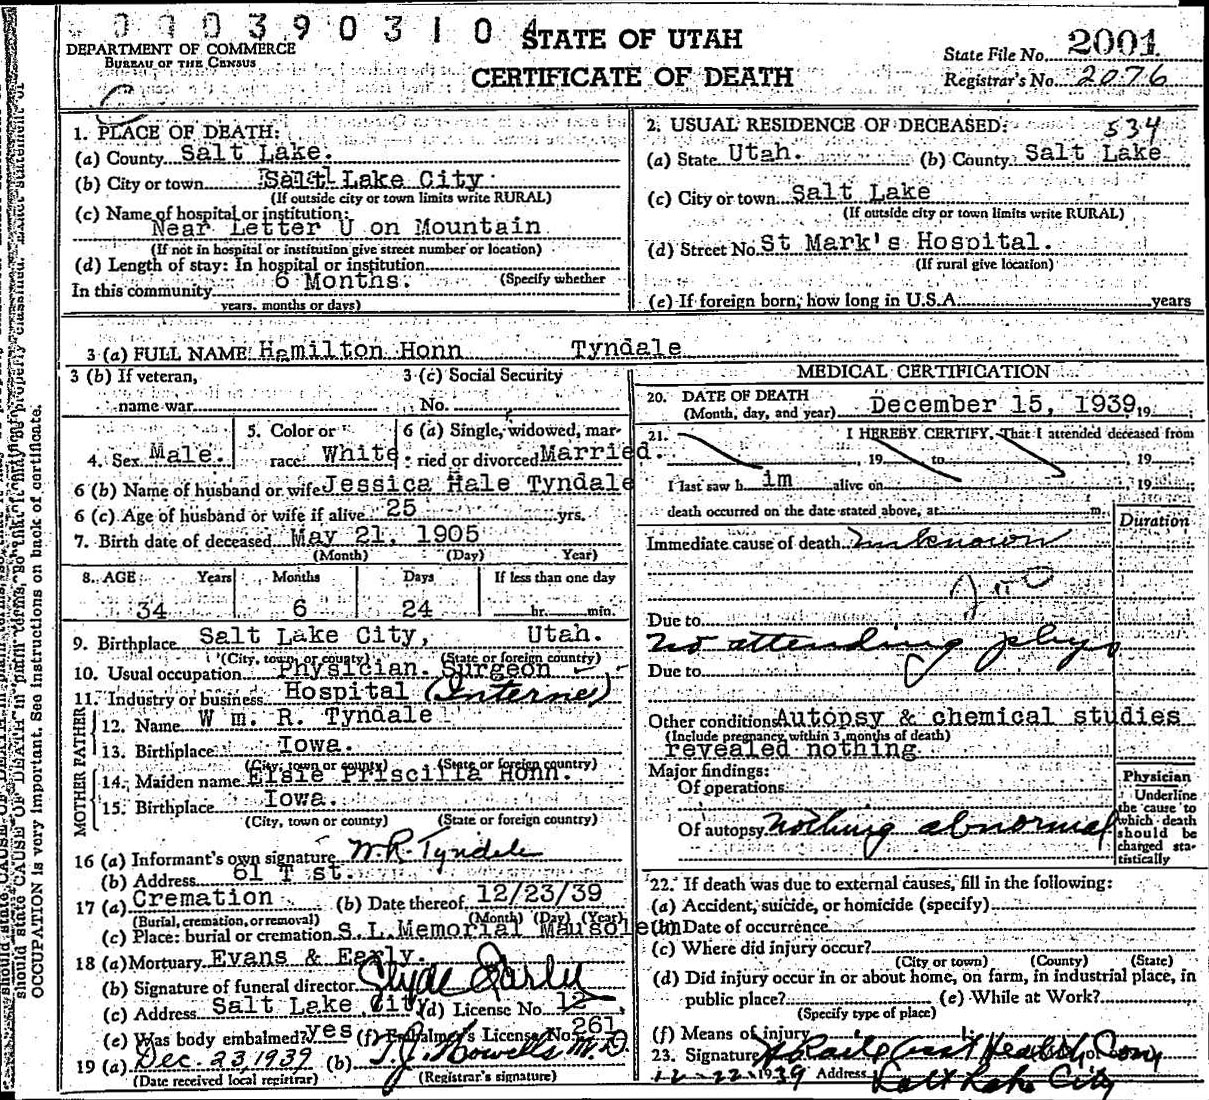 0003903104
STATE OF UTAH
CERTIFICATE OF DEATH
DEPARTMENT OF COMMERCE
BUREAU OF THE CENSUS
State File No. 2001
Registrar's No. 2076
1. PLACE OF DEATH:
(a) County Salt Lake.
(b) City or town Salt Lake City
(If outside city or town limits write RURAL)
(c) Name of hospital or institution:
Near Letter U on Mountain
(If not in hospital or institution give street number or location)
(d) Length of stay: In hospital or institution
(Specify whether
In this community 6 Months.
years, months or days)
2. USUAL RESIDENCE OF DECEASED: 534
(a) State Utah. (b) County Salt Lake
(c) City or town Salt Lake
(If outside city or town limits write RURAL)
(d) Street No. St Mark's Hospital.
(If rural give location)
(e) If foreign born, how long in U.S.A. years
3 (a) FULL NAME Hamilton Honn Tyndale
3 (b) If veteran, name war
3 (c) Social Security No.
4. Sex Male.
5. Color or race White
6 (a) Single, widowed, married or divorced Married.
6 (b) Name of husband or wife Jessica Hale Tyndale
6 (c) Age of husband or wife if alive 25 yrs.
7. Birth date of deceased May 21, 1905
(Month) (Day) Year)
8. AGE Years Months Days If less than one day
34 6 24 hr. min.
9. Birthplace Salt Lake City, Utah.
(City, town or county) (State or foreign country)
10. Usual occupation Physician. Surgeon
11. Industry or business Hospital (Interne)
MOTHER FATHER
12. Name Wm. R. Tyndale
13. Birthplace Iowa.
(City, town or county) (State or foreign country)
14. Maiden name Elsie Priscilla Honn.
15. Birthplace Iowa.
(City, town or county) (State or foreign country)
16 (a) Informant's own signature W.R. Tyndale
(b) Address 61 T st.
17 (a) Cremation (b) Date thereof 12/23/39
(Burial, cremation, or removal) (Month) (Day) (Year)
(c) Place: burial or cremation S.L. Memorial Mausoleum
18 (a) Mortuary Evans & Early.
(b) Signature of funeral director Clyde Early
(c) Address Salt Lake City (d) License No. 12
(e) Was body embalmed? yes (f) Embalmer's License No. 261
19 (a) Dec. 23, 1939 (b) T.J. Howells M.D.
(Date received local registrar) (Registrar's signature)
MEDICAL CERTIFICATION
20. DATE OF DEATH
(Month, day, and year) December 15, 1939, 19
21. I HEREBY CERTIFY, That I attended deceased from
, 19 to , 19
I last saw h im alive on , 19
death occurred on the date stated above, at m.
Duration
Immediate cause of death unknown
Due to
no attending phys
Due to
Other conditions Autopsy & chemical studies
(Include pregnancy within 3 months of death)
revealed nothing
Major findings:
Of operations
Of autopsy nothing abnormal
Physician
Underline the cause to which death should be charged statistically
22. If death was due to external causes, fill in the following:
(a) Accident, suicide, or homicide (specify)
(b) Date of occurrence
(c) Where did injury occur?
(City or town) (County) (State)
(d) Did injury occur in or about home, on farm, in industrial place, in
public place? (e) While at Work?
(Specify type of place)
(f) Means of injury
23. Signature Asst Health Com
12-22-1939 Address Salt Lake City
OCCUPATION is very important. See instructions on back of certificate.